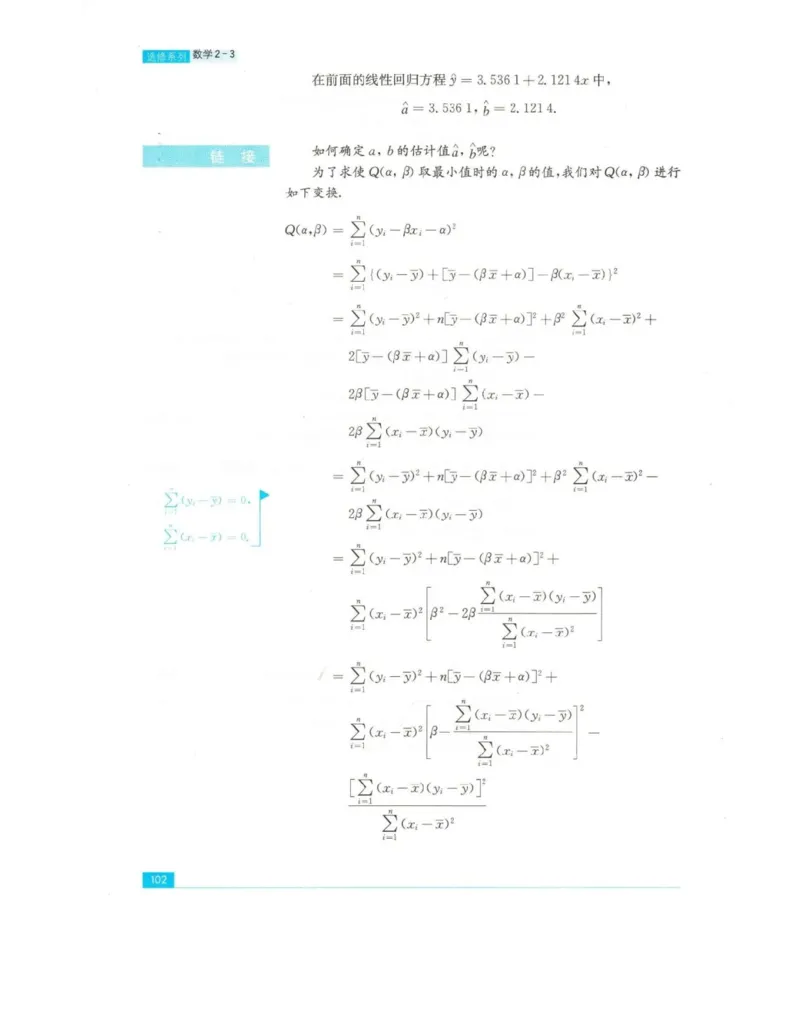 选修系列 数学2-3
在前面的线性回归方程 ŷ = 3.5361+2.1214x 中,
â = 3.5361, b̂ = 2.1214.
链 接
如何确定 a, b 的估计值 â, b̂ 呢?
为了求使 Q(α, β) 取最小值时的 α, β 的值,我们对 Q(α, β) 进行
如下变换.
Q(α,β) = ∑_{i=1}^{n} (y_i − βx_i − α)²
= ∑_{i=1}^{n} {(y_i − ȳ) + [ȳ − (βx̄ + α)] − β(x_i − x̄)}²
= ∑_{i=1}^{n} (y_i − ȳ)² + n[ȳ − (βx̄ + α)]² + β² ∑_{i=1}^{n} (x_i − x̄)² +
2[ȳ − (βx̄ + α)] ∑_{i=1}^{n} (y_i − ȳ) −
2β[ȳ − (βx̄ + α)] ∑_{i=1}^{n} (x_i − x̄) −
2β ∑_{i=1}^{n} (x_i − x̄)(y_i − ȳ)
= ∑_{i=1}^{n} (y_i − ȳ)² + n[ȳ − (βx̄ + α)]² + β² ∑_{i=1}^{n} (x_i − x̄)² −
2β ∑_{i=1}^{n} (x_i − x̄)(y_i − ȳ)
∑_{i=1}^{n} (y_i − ȳ) = 0,
∑_{i=1}^{n} (x_i − x̄) = 0.
= ∑_{i=1}^{n} (y_i − ȳ)² + n[ȳ − (βx̄ + α)]² +
∑_{i=1}^{n} (x_i − x̄)² [β² − 2β (∑_{i=1}^{n} (x_i − x̄)(y_i − ȳ)) / (∑_{i=1}^{n} (x_i − x̄)²)]
= ∑_{i=1}^{n} (y_i − ȳ)² + n[ȳ − (βx̄ + α)]² +
∑_{i=1}^{n} (x_i − x̄)² [β − (∑_{i=1}^{n} (x_i − x̄)(y_i − ȳ)) / (∑_{i=1}^{n} (x_i − x̄)²)]² −
[∑_{i=1}^{n} (x_i − x̄)(y_i − ȳ)]² / ∑_{i=1}^{n} (x_i − x̄)²
102